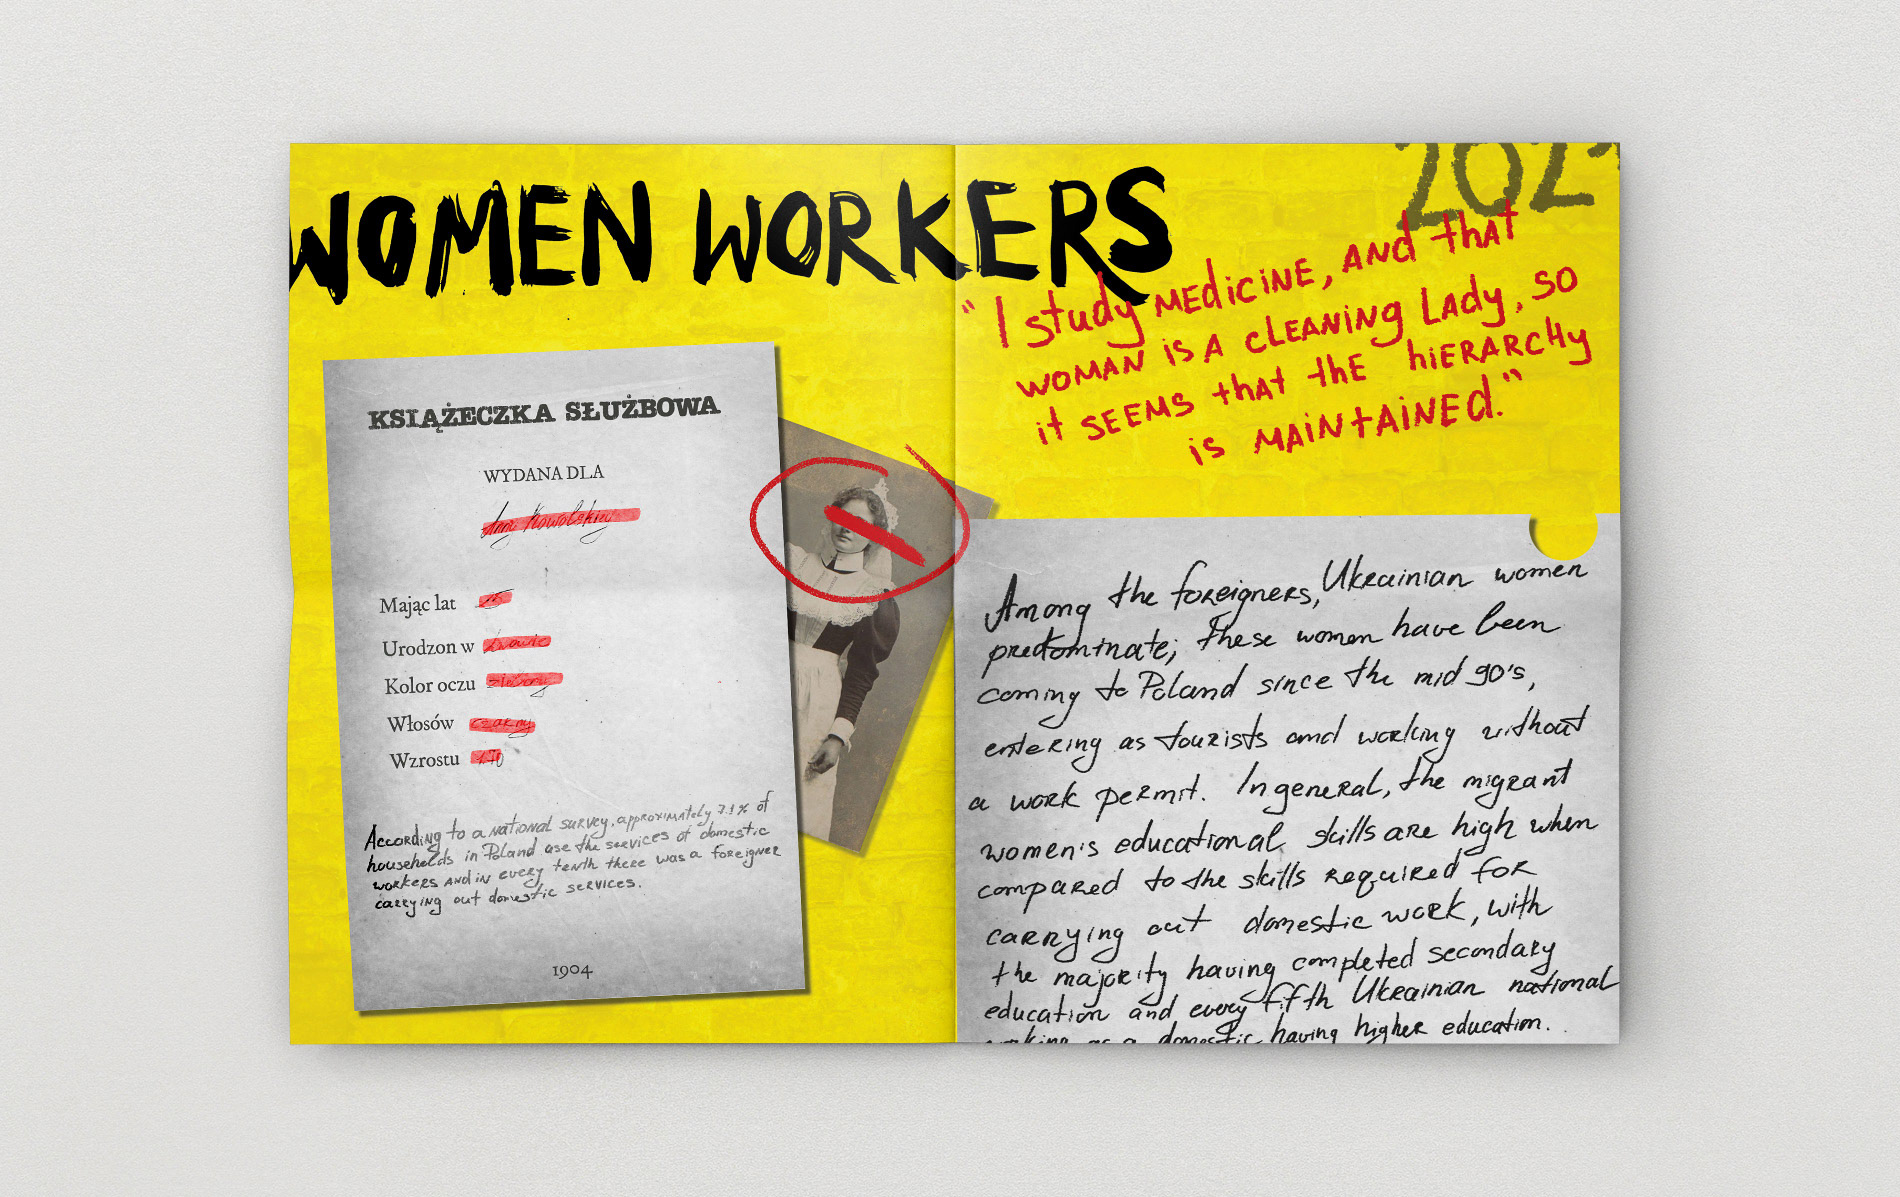 WOMEN WORKERS
202
"I study MEdiCiNE, ANd that
WOMAN is A cLEANiNg LAdy, SO
it SEEMS thAt thE hiERARCHy
is MAiNtAiNEd."
KSIĄŻECZKA SŁUŻBOWA
WYDANA DLA
Anny Kowalskiej
Mając lat
Urodzon w Lwowie
Kolor oczu
Włosów czarny
Wzrostu 170
According to a national survey, approximately 7.1% of
households in Poland use the services of domestic
workers and in every tenth there was a foreigner
carrying out domestic services.
1904
Among the foreigners, Ukrainian women
predominate; these women have been
coming to Poland since the mid 90's,
entering as tourists and working without
a work permit. In general, the migrant
women's educational skills are high when
compared to the skills required for
carrying out domestic work, with
the majority having completed secondary
education and every fifth Ukrainian national
working as a domestic having higher education.